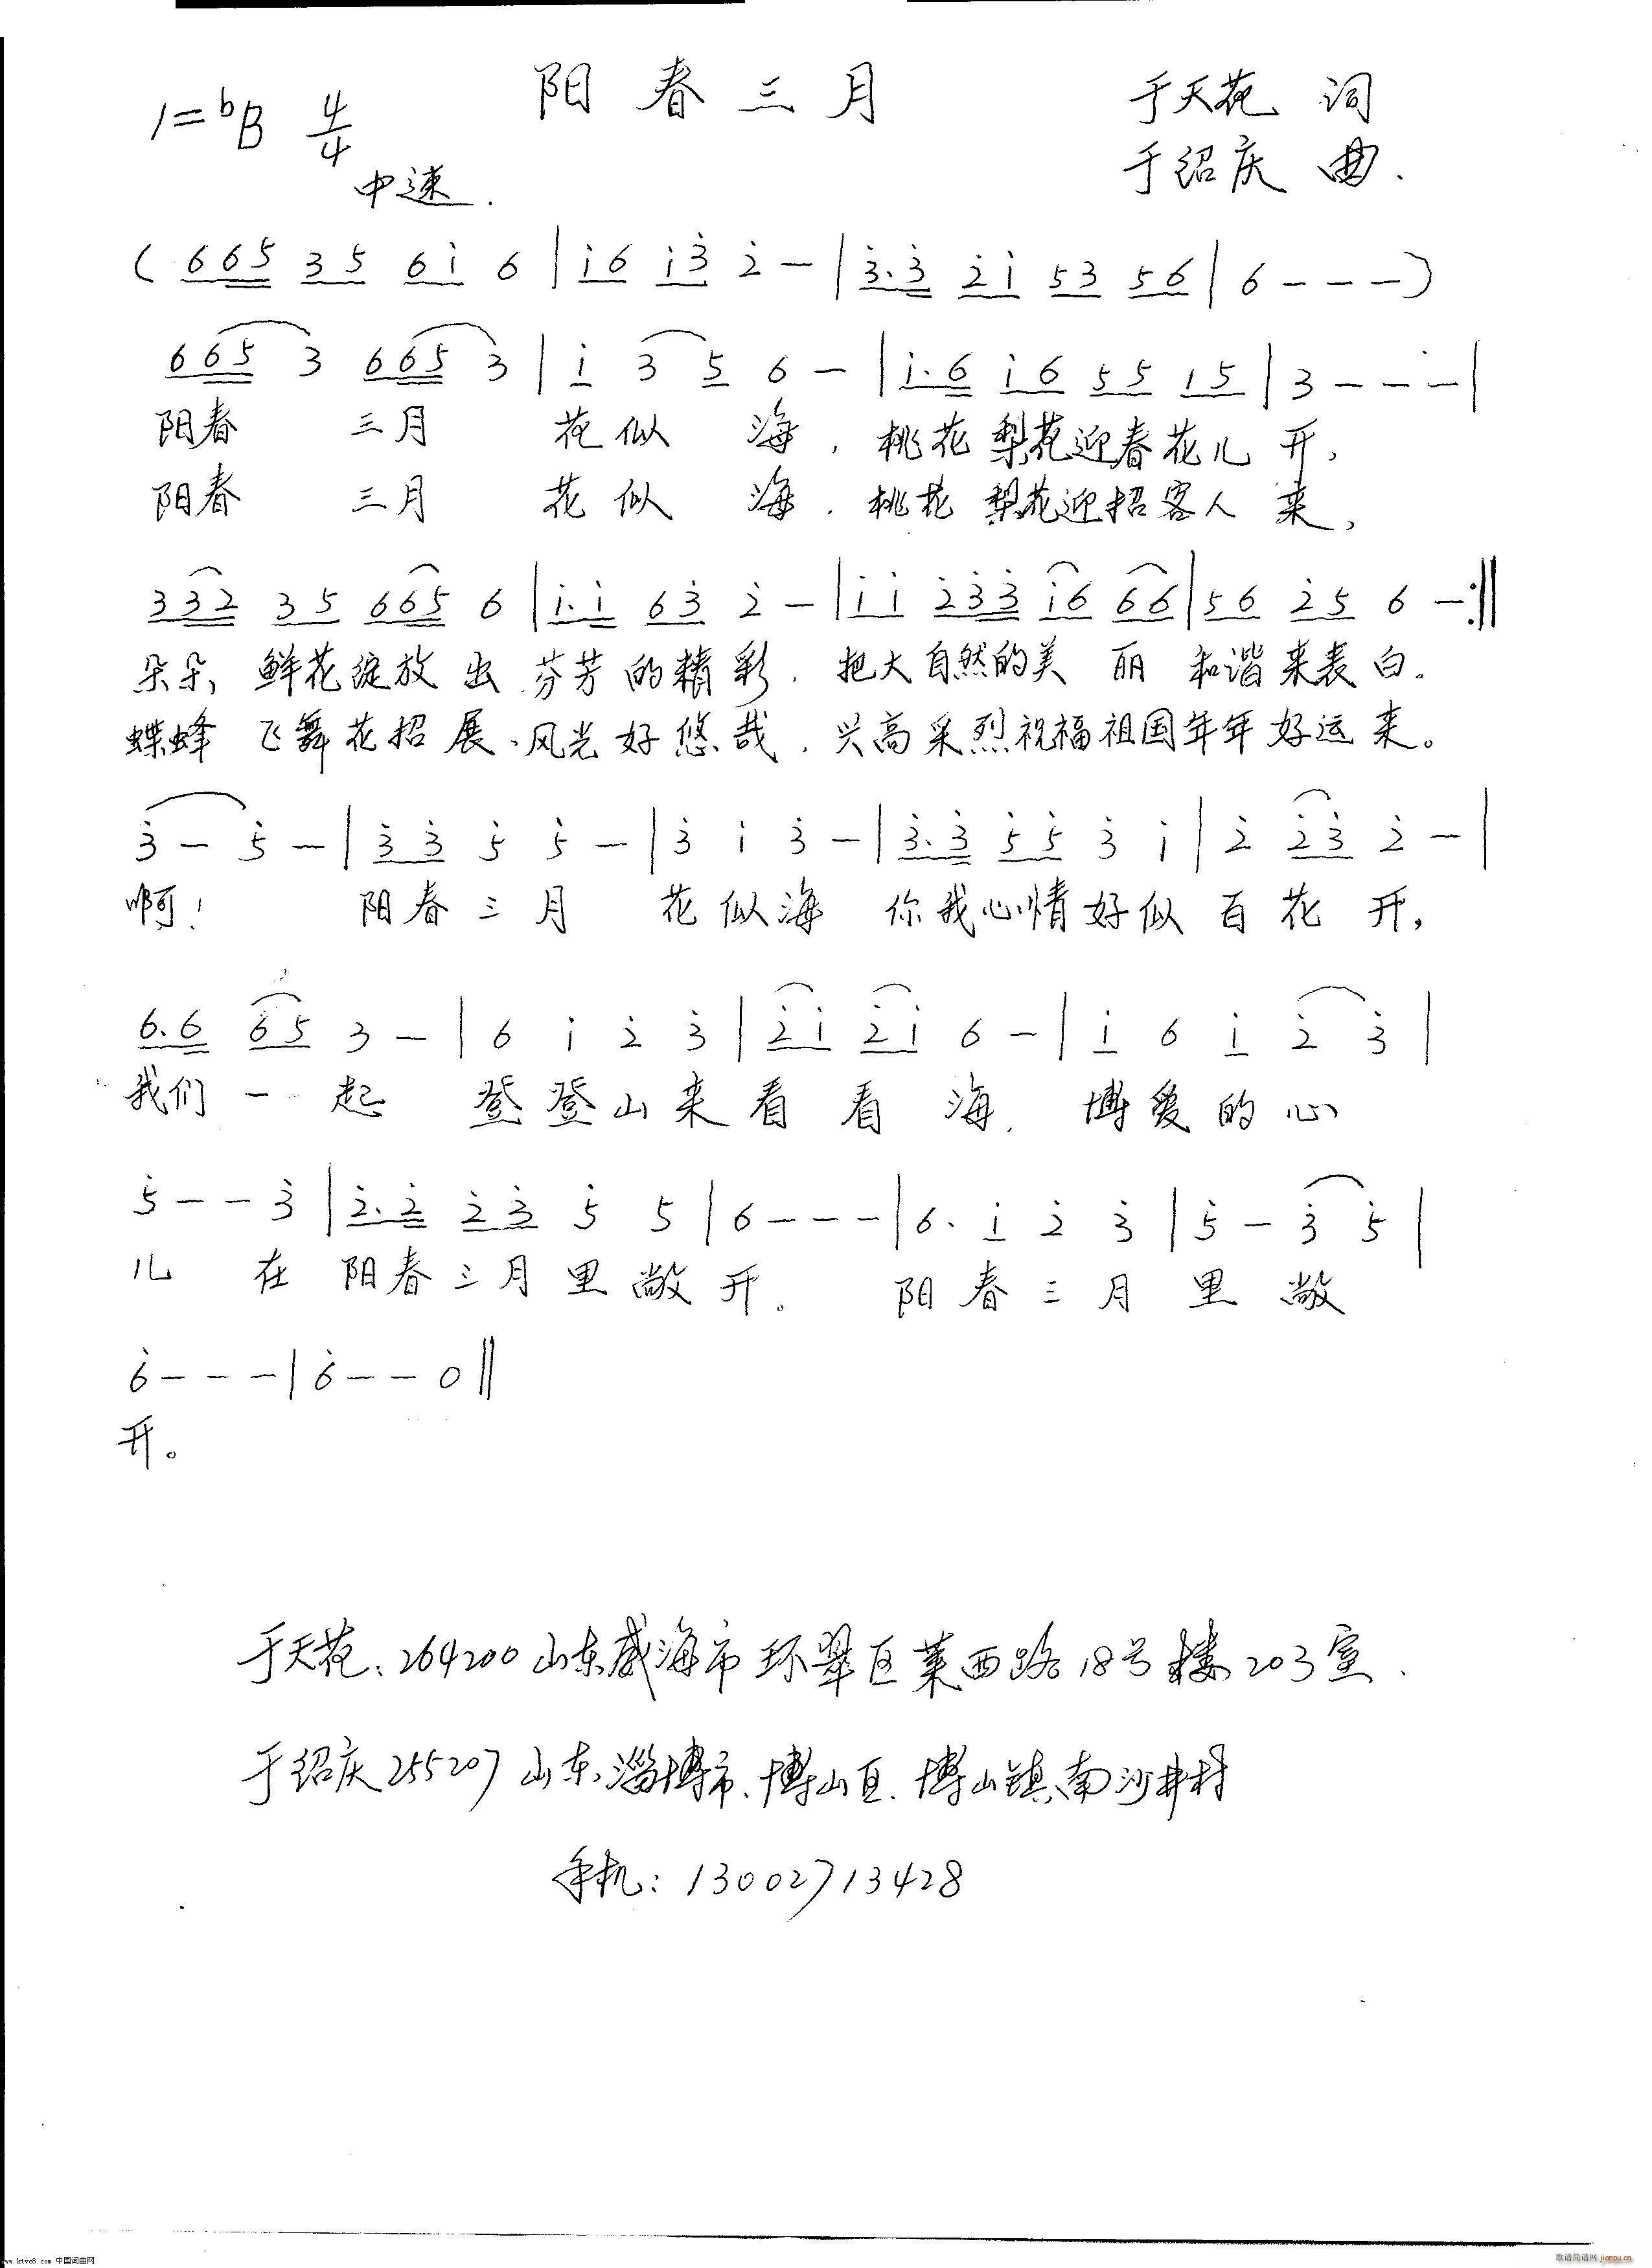 阳春三月
于天花 词
1=bB 4/4
于绍庆 曲.
中速.
( 665 35 6i 6 | i6 i3 2 — | 3.3 2i 53 56 | 6 - - - )
665 3 665 3 | i 3 5 6 — | i.6 i6 55 15 | 3 - - - |
阳春 三月 花似 海，桃花梨花迎春花儿 开，
阳春 三月 花似 海．桃花梨花迎招客人 来，
332 35 665 6 | i.i 63 2 — | ii 233 i6 66 | 56 25 6 — :||
朵朵、鲜花绽放出 芬芳的精彩．把大自然的美 丽 和谐来表白．
蝶蜂 飞舞花招展、风光好悠哉．兴高采烈祝福祖国年年好运来。
3 — 5 — | 33 5 5 — | 3 i 3 — | 3.3 55 3 i | 2 23 2 — |
啊！ 阳春三月 花似海 你我心情好似百花开，
6.6 65 3 — | 6 i 2 3 | 2i 2i 6 — | i 6 i 2 3 |
我们 一 起 登登山来看 看 海．博爱的心
5 - - 3 | 2.2 23 5 5 | 6 - - - | 6. i 2 3 | 5 — 3 5 |
儿 在 阳春三月里敞开。 阳春三月 里 敞
6 - - - | 6 - - 0 ||
开。
于天花：264200山东威海市环翠区莱西路18号楼203室．
于绍庆255207山东、淄博市、博山区．博山镇、南沙井村
手机：13002713428
www.ktvc8.com 中国词曲网
歌谱简谱网 jianpu.cn